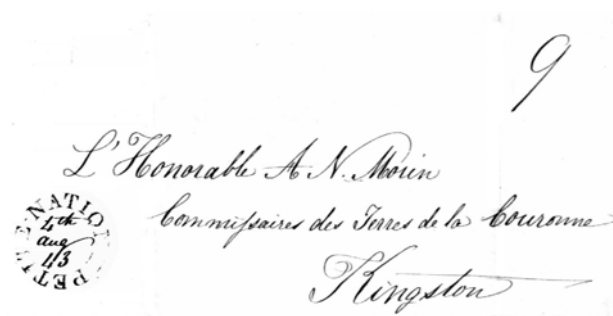 9
L'Honorable A N. Morin
Commissaires des Terres de la Couronne
Kingston
PETITE·NATION
4th
aug
43